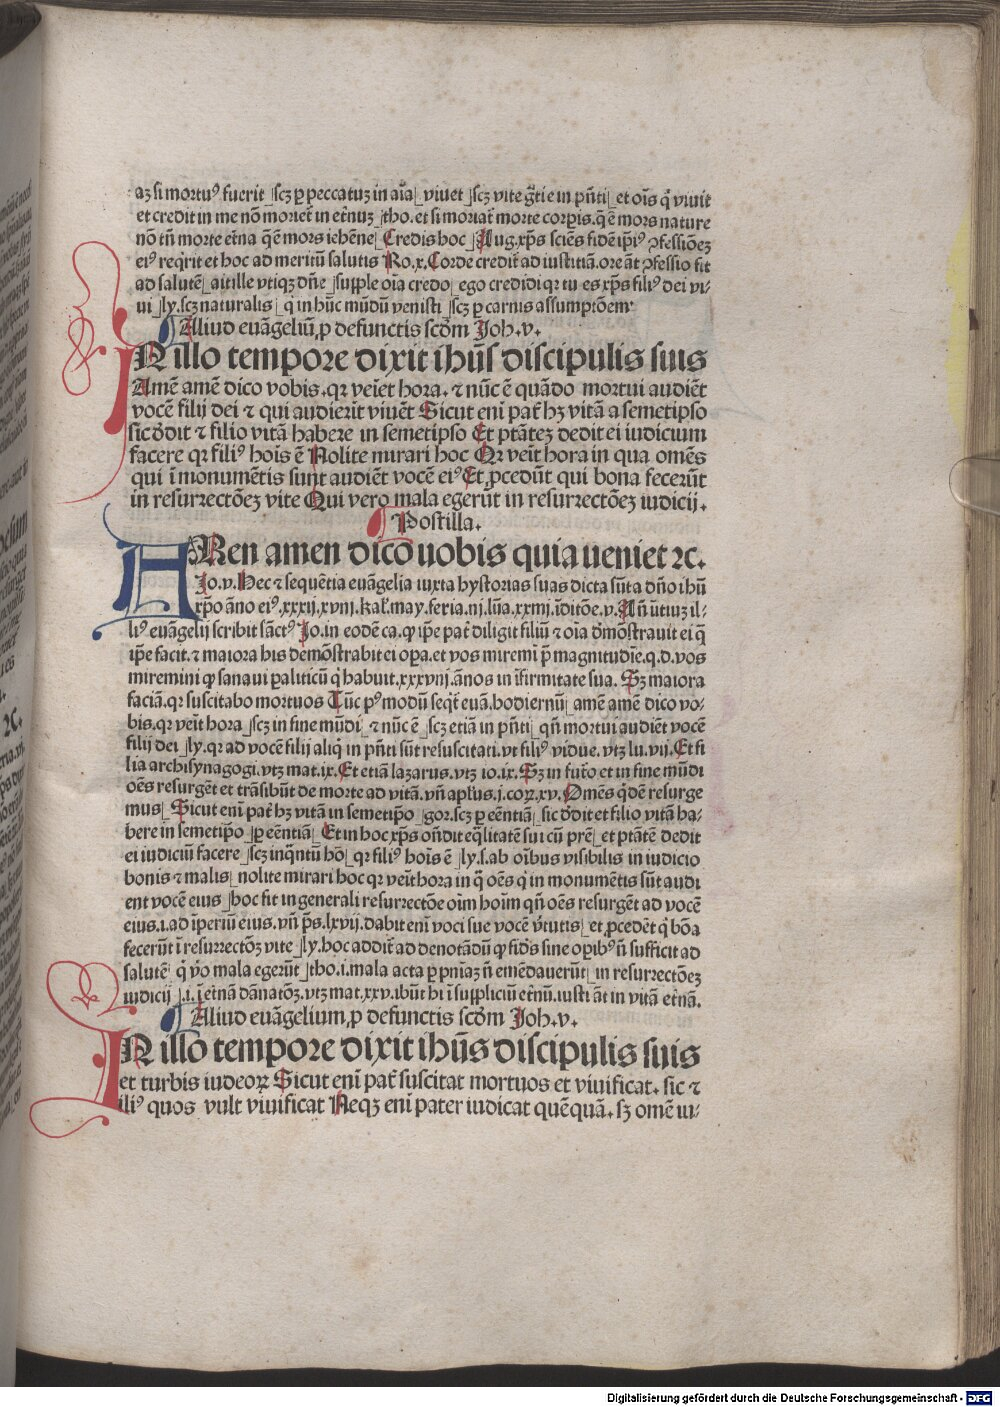 aʒ si mortuꝰ fuerit ⌋scʒ ꝑ peccatuʒ in aĩa⌊ viuet ⌋scʒ vite gr̃tie in pñti⌊ et oĩs q̇ viuit
et credit in me nõ moriet᷑ in et̃nuʒ ⌋tho. et si moriat᷑ morte corꝑis. q̃ ẽ mors nature
nõ tñ morte et̃na q̃ ẽ mors iehẽne⌊ Credis hoc ⌋Aug. xp̃s sciẽs fidẽ ip̃iꝰ ꝓfessiõeʒ
eiꝰ req̇rit et hoc ad meritũ salutis Ro.x. Corde credit᷑ ad iustitiã. ore ãt ꝓfessio fit
ad salutẽ⌊ ait ille vtiqʒ dñe ⌋supple oĩa credo⌊ ego credidi qꝛ tu es xp̃s filiꝰ dei vi-
ui ⌋ly. scʒ naturalis⌊ q̇ in hũc mũdũ venisti ⌋scʒ ꝑ carnis assumptõem
Aliud euãgeliũ ꝓ defunctis scd̃m Joh. v.
IN illo tempore dixit ihũs discipulis suis
Amẽ amẽ dico vobis. qꝛ veĩet hora. ⁊ nũc ẽ quãdo mortui audiẽt
vocẽ filij dei ⁊ qui audierĩt viuẽt Sicut eni pat᷑ hʒ vitã a semetipso
sic d̃dit ⁊ filio vitã habere in semetipso Et ptãteʒ dedit ei iudicium
facere qꝛ filiꝰ hoĩs ẽ Nolite mirari hoc Qꝛ veĩt hora in qua omẽs
qui ĩ monumẽtis sunt audiẽt vocẽ eiꝰ Et ꝓcedũt qui bona fecerũt
in resurrectõeʒ vite Qui vero mala egerũt in resurrectõeʒ iudicij.
Postilla.
AMen amen dico uobis quia ueniet ⁊c.
Jo.v. Hec ⁊ sequẽtia euãgelia iuxta hystorias suas dicta sũta dño ihũ
xp̃o ãno eiꝰ.xxxij.xvnj.kal̃.may.feria.nj.lũa.xxmj.ĩditõe.v. Añ ũtiuʒ il-
liꝰ euãgelij scribit sãctꝰ Jo. in eodẽ ca. ꝙ ip̃e pat᷑ diligit filiũ ⁊ oĩa dẽmõstrauit ei q̃
ip̃e facit. ⁊ maiora his demõstrabit ei oꝑa. et vos miremĩ p̃ magnitudĩe. q.d. vos
miremini ꝙ sanaui ꝑaliticũ q̇ habuit.xxxvnj.ãnos in ĩfirmitate sua. Sʒ maiora
faciã. qꝛ suscitabo mortuos Tũc pꝰ modũ seq̃t᷑ euã. hodiernũ⌊ amẽ amẽ dico vo-
bis. qꝛ veĩt hora ⌋scʒ in fine mũdi⌊ ⁊ nũc ẽ ⌋scʒ etiã in pñti⌊ qñ mortui audiẽt vocẽ
filij dei ⌋ly. qꝛ ad vocẽ filij aliq̇ in pñti sũt resuscitati. vt filiꝰ vidue. vtʒ lu.vij. Et fi
lia archisynagogi. vtʒ mat.ix. Et etiã lazarus. vtʒ io.ix. Sʒ in fut᷑o et in fine mũdi
oẽs resurgẽt et trãsibũt de morte ad vitã. vñ apl̃us.j.coꝝ.xv. Omẽs q̇dẽ resurge
mus⌊ Sicut eni pat᷑ hʒ vitã in semetip̃o ⌋gor. scʒ ꝑ eẽntiã⌊ sic d̃dit et filio vitã ha-
bere in semetip̃o ⌋ꝑ eẽntiã⌊ Et in hoc xp̃s oñdit eq̃litatẽ sui cũ prẽ⌊ et ptãtẽ dedit
ei iudiciũ facere ⌋scʒ inq̃ntũ hõ⌊ qꝛ filiꝰ hoĩs ẽ ⌋ly.s.ab oĩbus visibilis in iudicio
bonis ⁊ malis⌊ nolite mirari hoc qꝛ veĩt hora in q̃ oẽs q̇ in monumẽtis sũt audi
ent vocẽ eius ⌋hoc fit in generali resurrectõe oĩm hoĩm qñ oẽs resurgẽt ad vocẽ
eius.i.ad ĩperiũ eius. vñ p̃s.lxvij. dabit eni voci sue vocẽ v̾tutis⌊ et ꝓcedẽt q̇ bõa
fecerũt ĩ resurrectõʒ vite ⌋ly. hoc addit᷑ ad denotãdũ ꝙ fid̃s sine oꝑibꝰ ñ sufficit ad
salutẽ⌊ q̇ v̾o mala egerũt ⌋tho.i.mala acta ꝑ pniaʒ ñ emẽdauerũt⌊ in resurrectõeʒ
iudicij ⌋.i. ĩ et̃nã dãnatõʒ. vtʒ mat.xxv. ibũt hi ĩ suppliciũ et̃nũ. iusti ãt in vitã et̃nã.
Aliud euãgelium ꝓ defunctis scd̃m Joh. v.
IN illo tempore dixit ihũs discipulis suis
et turbis iudeoꝝ Sicut eni pat᷑ suscitat mortuos et viuificat. sic ⁊
iliꝰ quos vult viuificat Neqʒ eni pater iudicat quẽquã. sʒ omẽ iu-
Digitalisierung gefördert durch die Deutsche Forschungsgemeinschaft - DFG